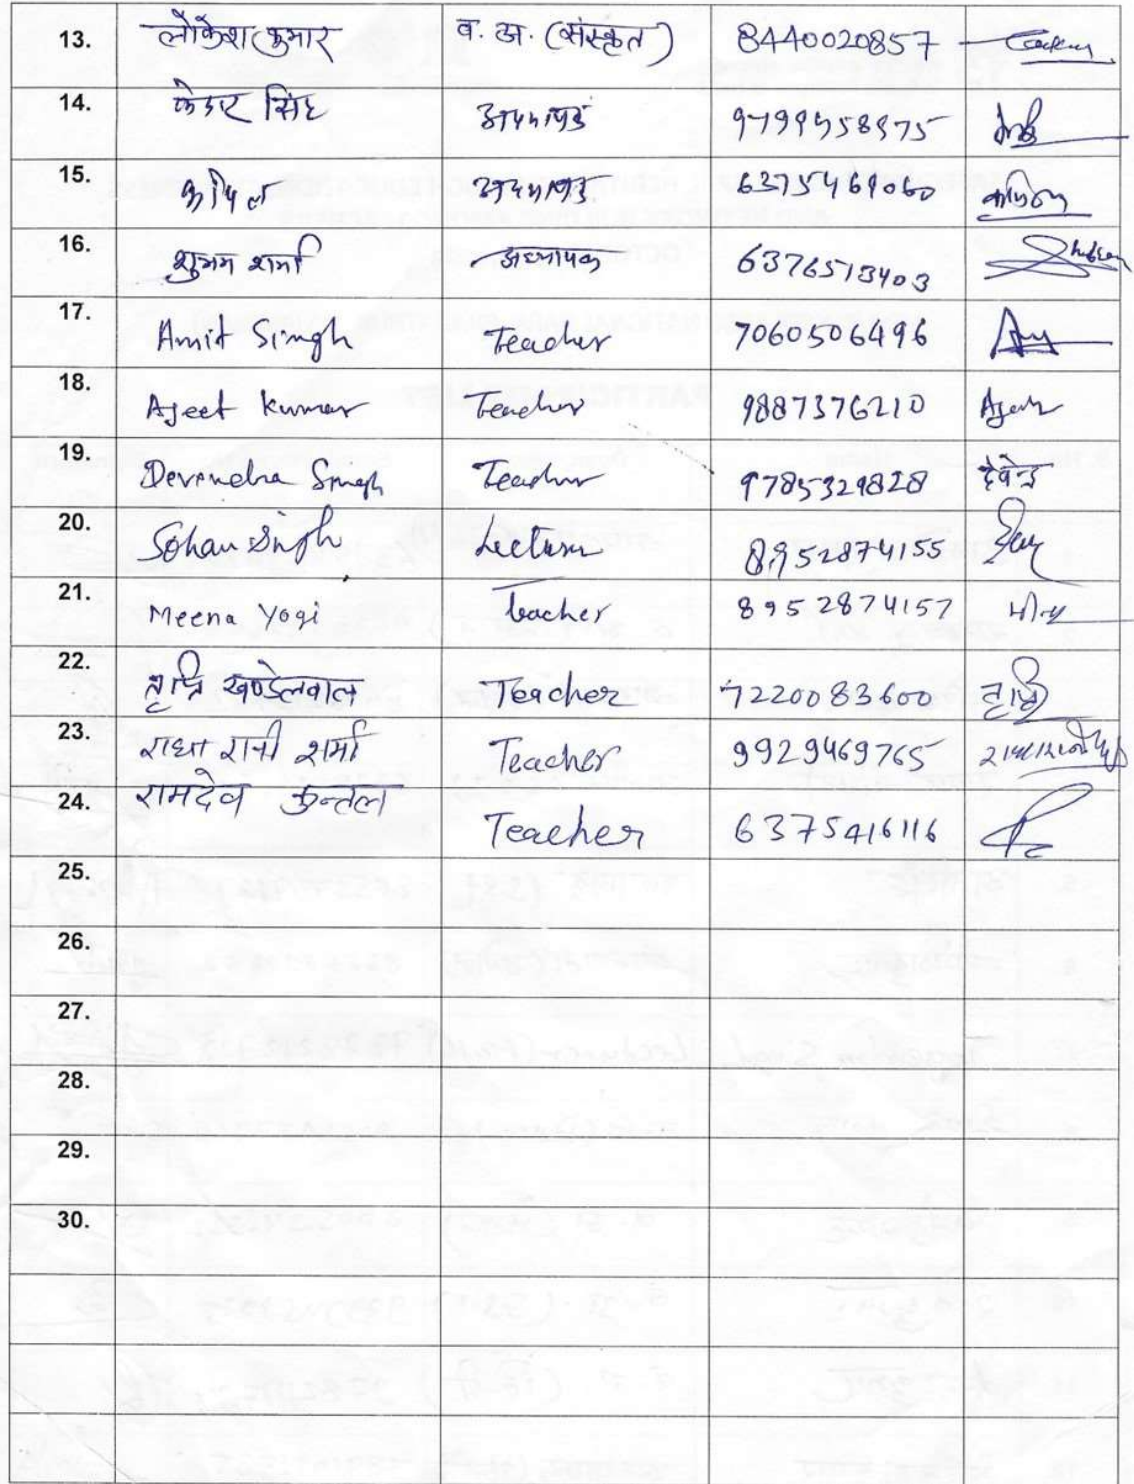 13. लोकेश कुमार व. अ. (संस्कृत) 8440020857
14. केदार सिंह अध्यापक
15. कपिल अध्यापक 6375469060
16. शुभम शर्मा अध्यापक 6376513403 Shubham
17. Amit Singh Teacher 7060506496
18. Ajeet Kumar Teacher 9887376210 Ajeet
19. Devendra Singh Teacher 9785329828 देवेन्द्र
20. Sohan Singh Lecturer 8952874155
21. Meena Yogi Teacher 8952874157 मीना
22. तृप्ति खण्डेलवाल Teacher 7220083600 तृप्ति
23. राधा रानी शर्मा Teacher 9929469765
24. रामदेव कुन्तल Teacher 6375416116
25.
26.
27.
28.
29.
30.